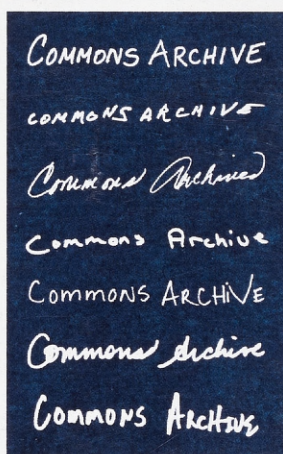 COMMONS ARCHIVE
COMMONS ARCHIVE
Commons Archives
Commons Archive
COMMONS ARCHiVE
Commons Archive
COMMONS ARCHIVE